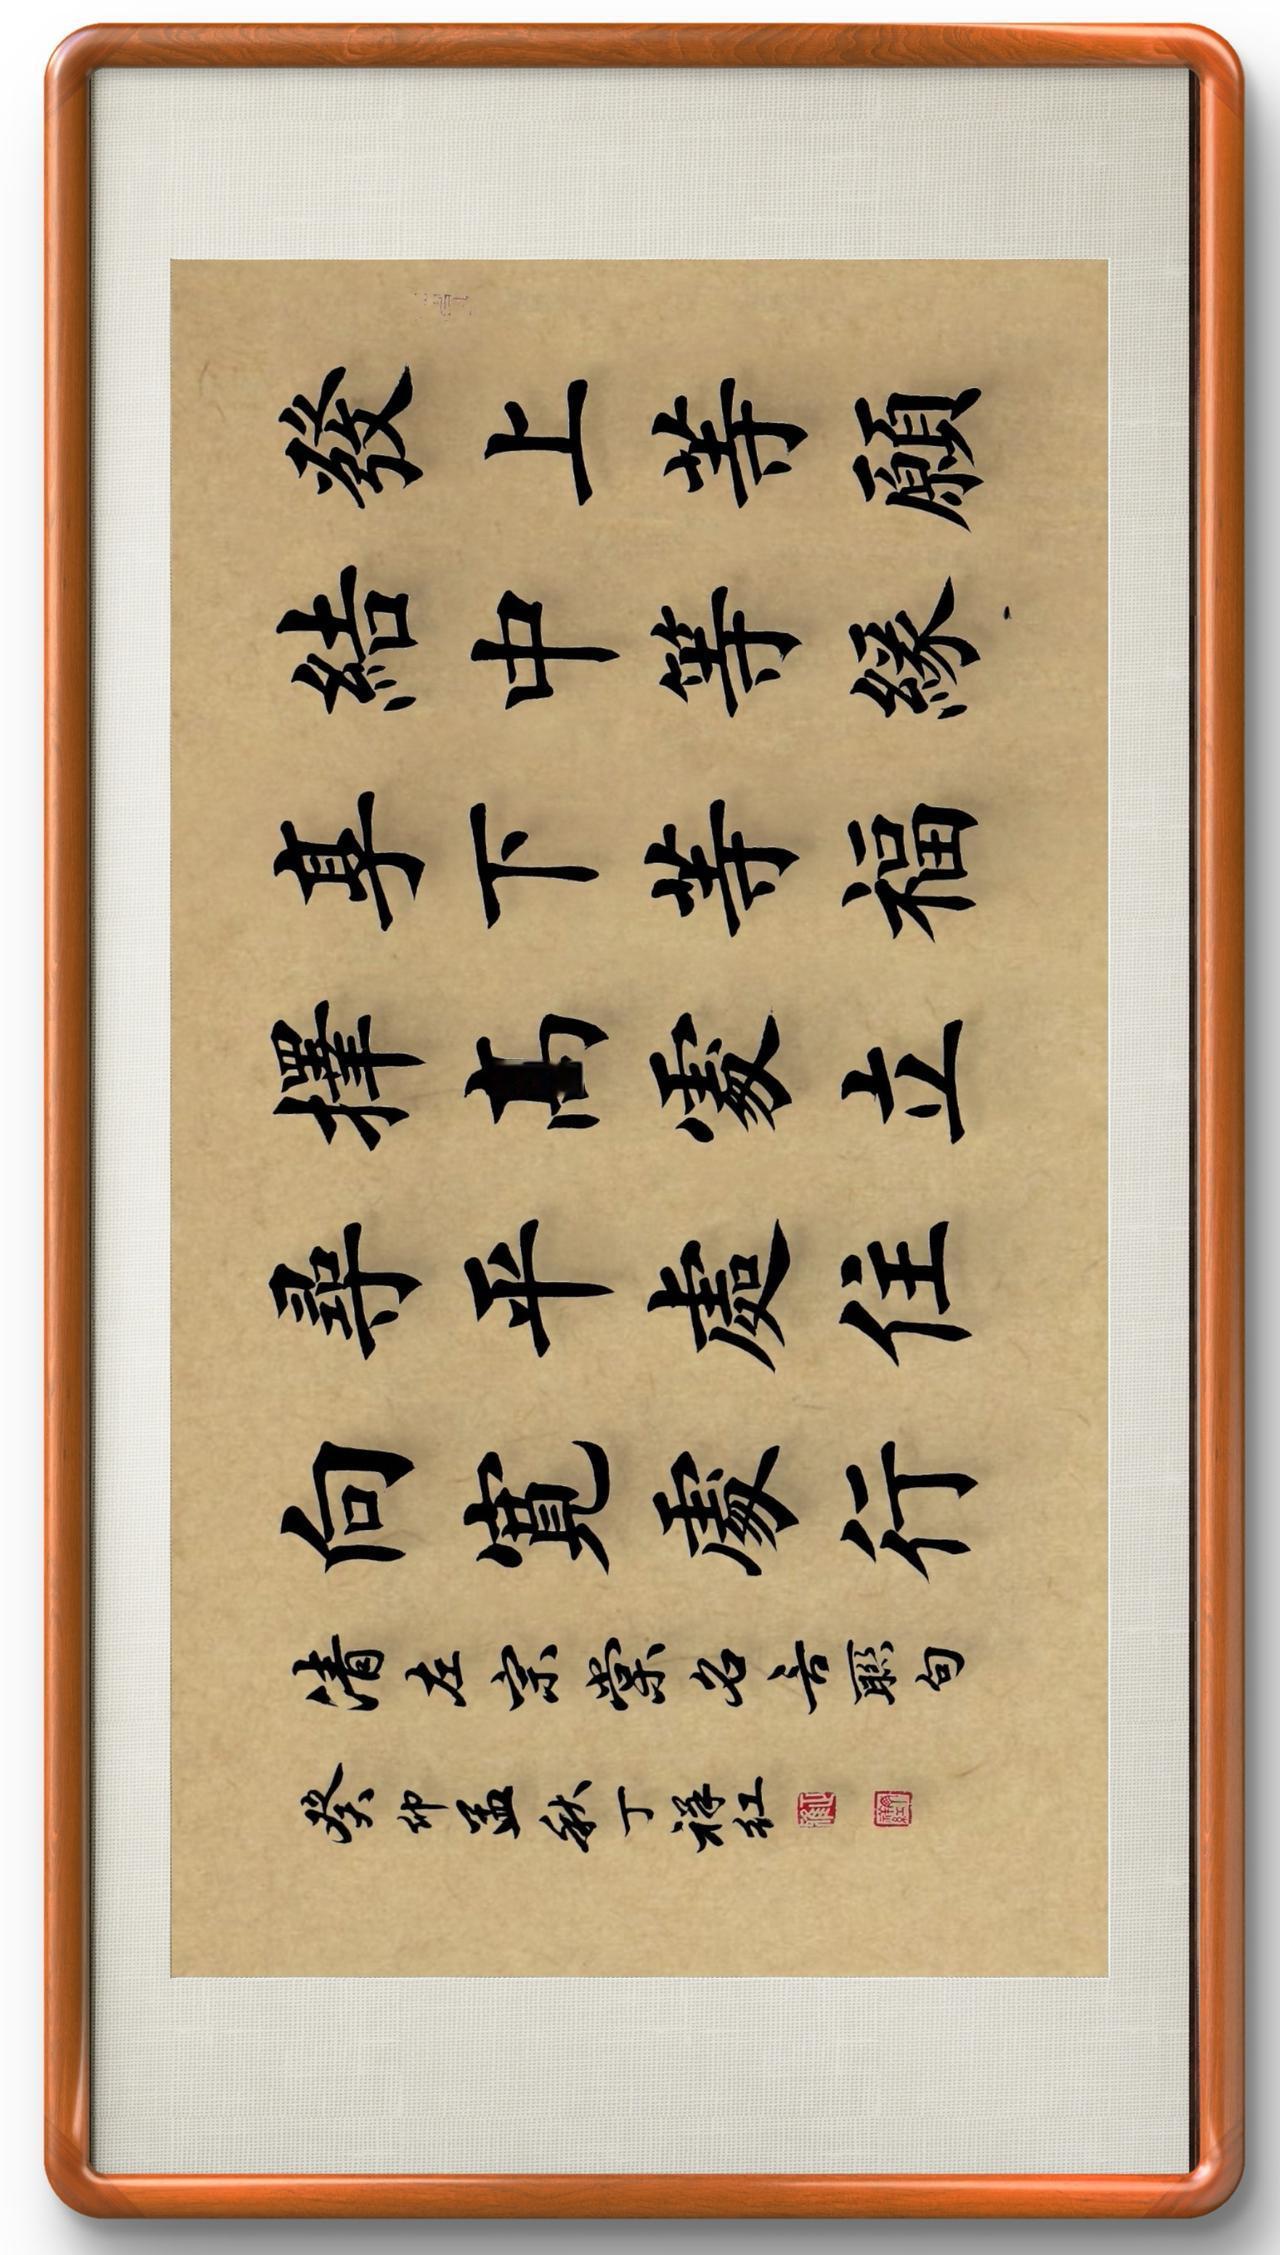 發上等願
結中等緣
享下等福
擇高處立
尋平處住
向寬處行
清左宗棠名言聯句
癸卯孟秋丁祥红